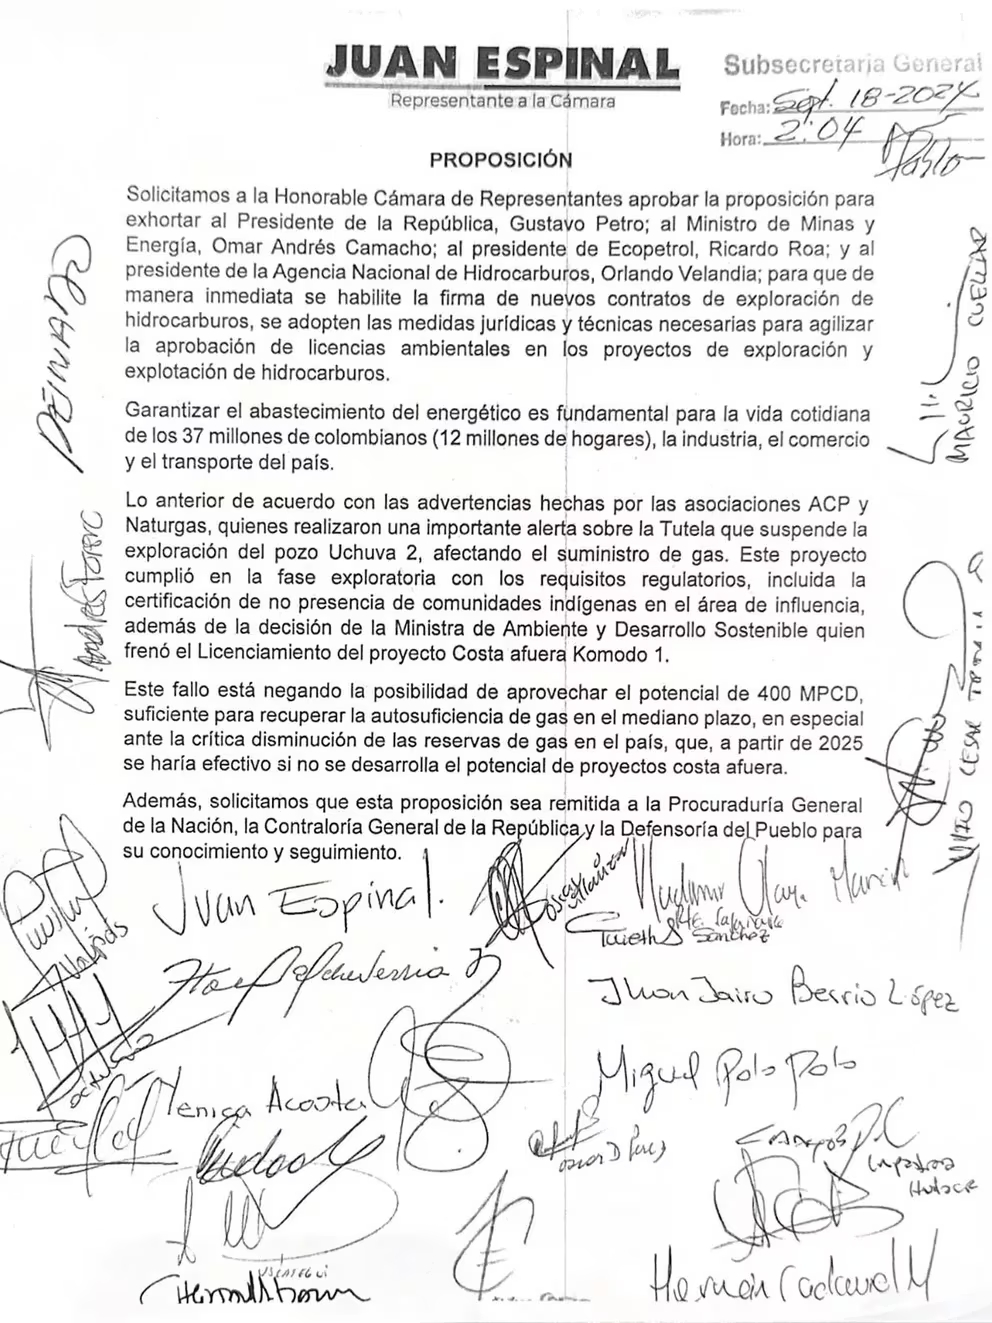 JUAN ESPINAL
Representante a la Cámara
Subsecretaria General
Fecha: Sept. 18-2024
Hora: 2:04
PROPOSICIÓN
Solicitamos a la Honorable Cámara de Representantes aprobar la proposición para
exhortar al Presidente de la República, Gustavo Petro; al Ministro de Minas y
Energía, Omar Andrés Camacho; al presidente de Ecopetrol, Ricardo Roa; y al
presidente de la Agencia Nacional de Hidrocarburos, Orlando Velandia; para que de
manera inmediata se habilite la firma de nuevos contratos de exploración de
hidrocarburos, se adopten las medidas jurídicas y técnicas necesarias para agilizar
la aprobación de licencias ambientales en los proyectos de exploración y
explotación de hidrocarburos.
Garantizar el abastecimiento del energético es fundamental para la vida cotidiana
de los 37 millones de colombianos (12 millones de hogares), la industria, el comercio
y el transporte del país.
Lo anterior de acuerdo con las advertencias hechas por las asociaciones ACP y
Naturgas, quienes realizaron una importante alerta sobre la Tutela que suspende la
exploración del pozo Uchuva 2, afectando el suministro de gas. Este proyecto
cumplió en la fase exploratoria con los requisitos regulatorios, incluida la
certificación de no presencia de comunidades indígenas en el área de influencia,
además de la decisión de la Ministra de Ambiente y Desarrollo Sostenible quien
frenó el Licenciamiento del proyecto Costa afuera Komodo 1.
Este fallo está negando la posibilidad de aprovechar el potencial de 400 MPCD,
suficiente para recuperar la autosuficiencia de gas en el mediano plazo, en especial
ante la crítica disminución de las reservas de gas en el país, que, a partir de 2025
se haría efectivo si no se desarrolla el potencial de proyectos costa afuera.
Además, solicitamos que esta proposición sea remitida a la Procuraduría General
de la Nación, la Contraloría General de la República y la Defensoría del Pueblo para
su conocimiento y seguimiento.
MAURICIO CUELLAR
Andrés Forero
CESAR
Juan Espinal.
Yulieth Sánchez
Echeverria
Jhon Jairo Berrio López
Miguel Polo Polo
Yenica Acosta
Oscar D Pérez
Hernán Cadavid M